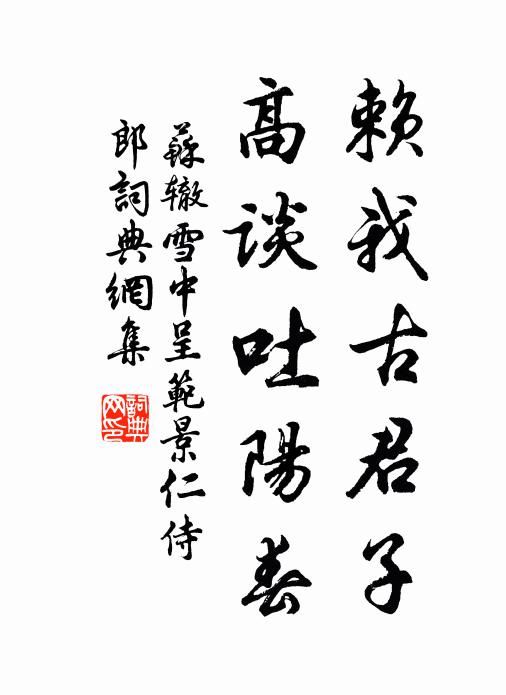 賴我古君子
高談吐陽春
蘇轍雪中呈範景仁侍
郎詞典網集
詞典
网印